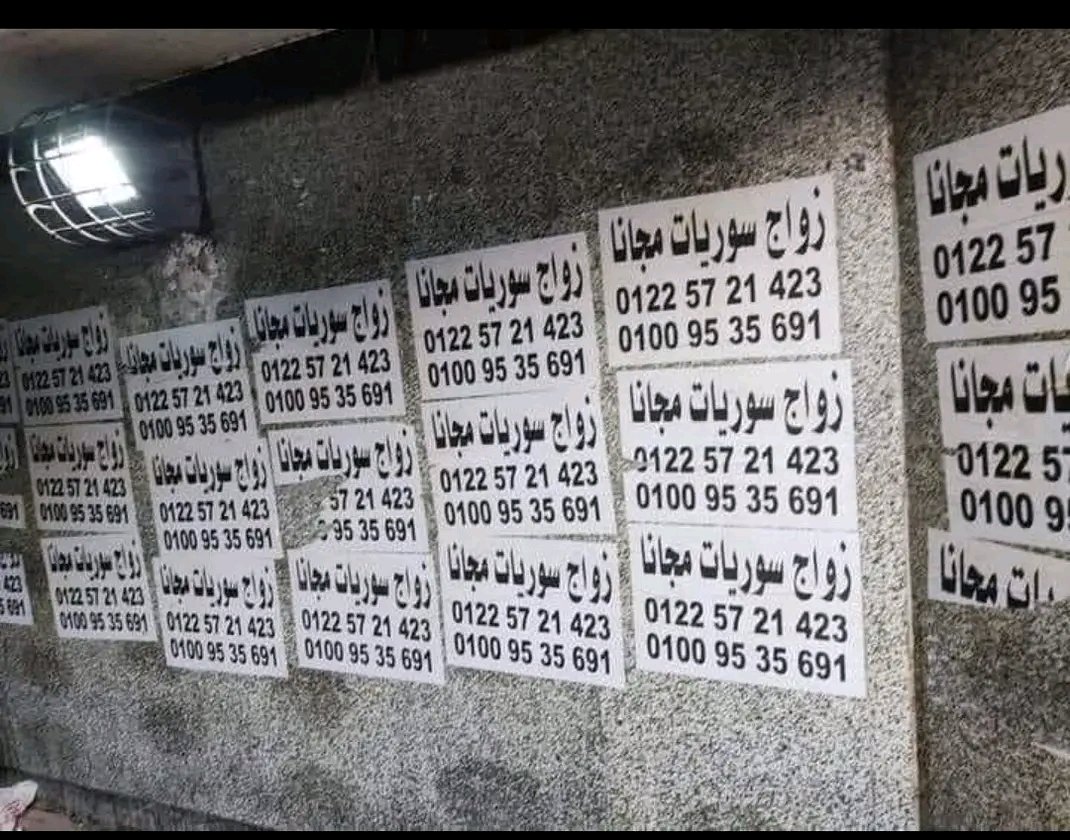 مجانا
0122 57
0100 95
زواج سوريات مجانا
0122 57 21 423
0100 95 35 691
زواج سوريات مجانا
0122 57 21 423
0100 95 35 691
زواج سوريات مجانا
0122 57 21 423
0100 95 35 691
زواج سوريات مجانا
0122 57 21 423
0100 95 35 691
زواج سوريات مجانا
0122 57 21 423
0100 95 35 691
مجانا
0122 57
0100 95
زواج سوريات مجانا
0122 57 21 423
0100 95 35 691
زواج سوريات مجانا
0122 57 21 423
0100 95 35 691
زواج سوريات مجانا
57 21 423
95 35 691
زواج سوريات مجانا
0122 57 21 423
0100 95 35 691
زواج سوريات مجانا
0122 57 21 423
0100 95 35 691
691
مجانا
زواج سوريات مجانا
0122 57 21 423
0100 95 35 691
زواج سوريات مجانا
0122 57 21 423
0100 95 35 691
زواج سوريات مجانا
0122 57 21 423
0100 95 35 691
زواج سوريات مجانا
0122 57 21 423
0100 95 35 691
زواج سوريات مجانا
0122 57 21 423
0100 95 35 691
423
691